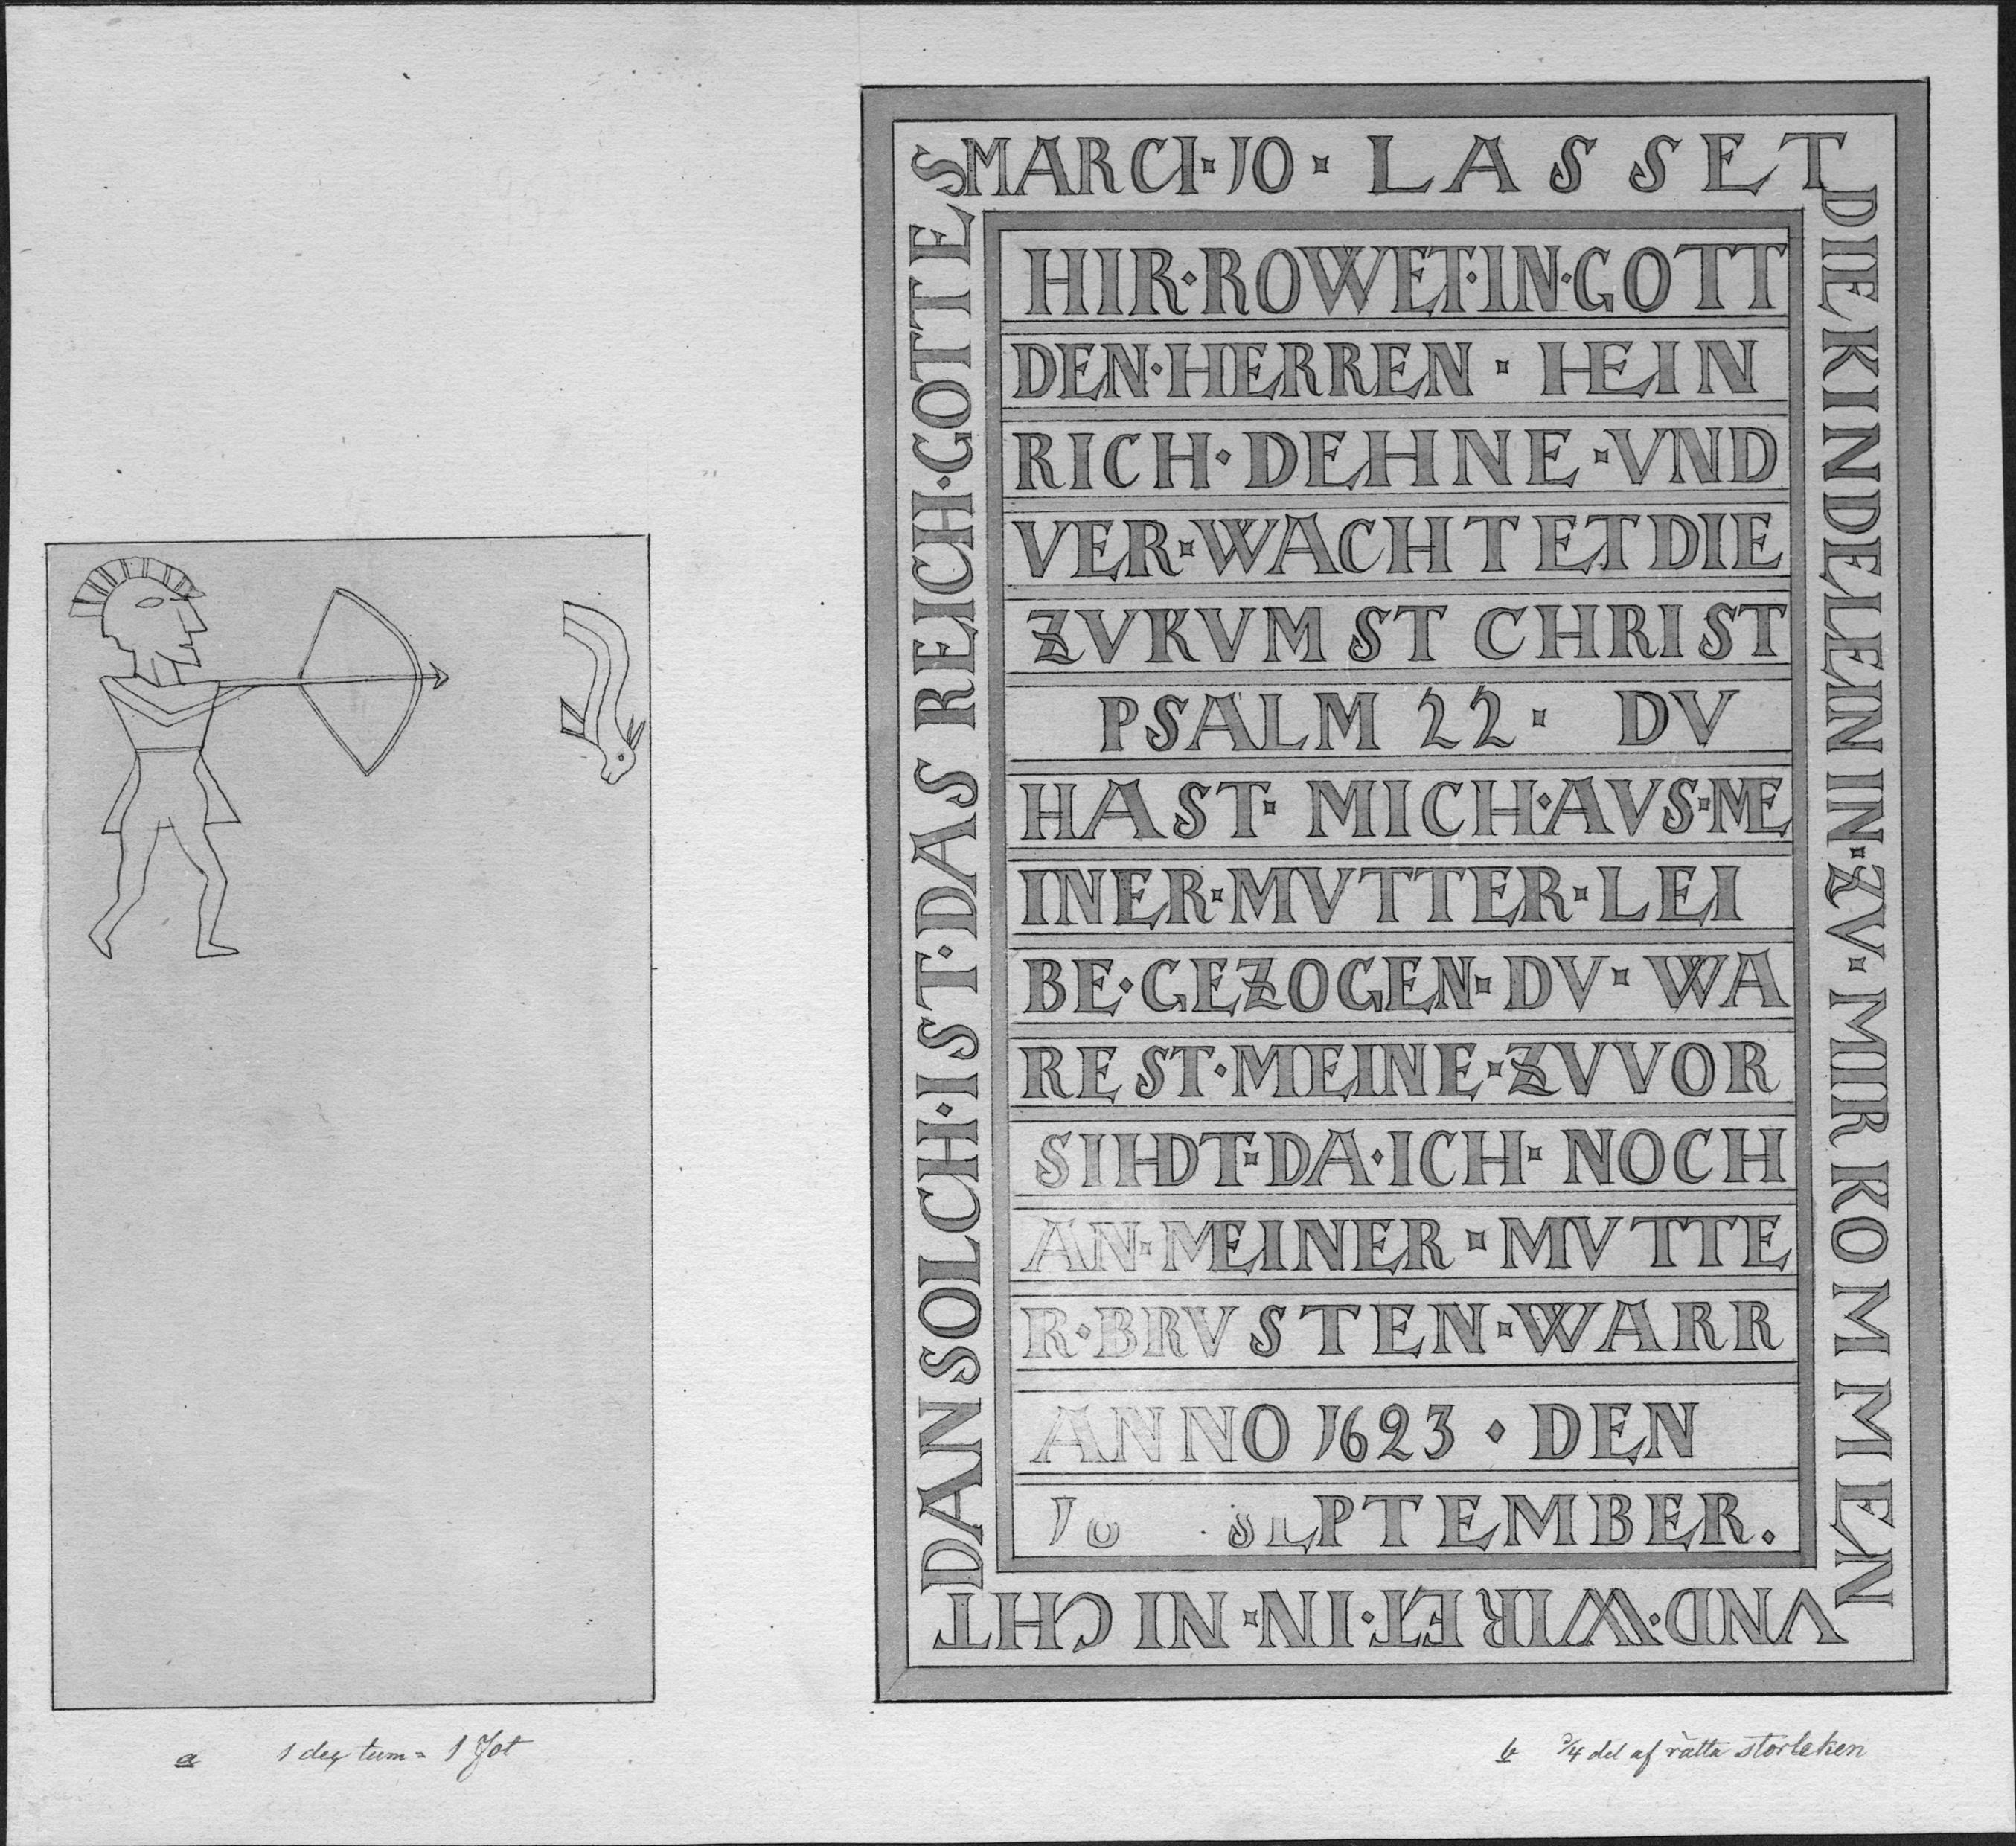 MARCI·10· LASSET
DIE KINDELEIN IN·ZV·MIR KOMMEN
VND·WIRET·IN·NICHT
DANSOLCH·IST·DAS REICH·GOTTES
HIR·ROWET·IN·GOTT
DEN·HERREN · HEIN
RICH·DEHNE·VND
VER·WACHTET DIE
ZVKVMST CHRIST
PSALM 22· DV
HAST· MICH·AVS·ME
INER·MVTTER·LEI
BE·GEZOGEN·DV·WA
REST·MEINE·ZVVOR
SIHDT·DA·ICH· NOCH
AN·MEINER·MVTTE
R·BRVSTEN·WARR
ANNO 1623 · DEN
SEPTEMBER.
a 1 dec tum = 1 fot
b 3/4 del af rätta storleken